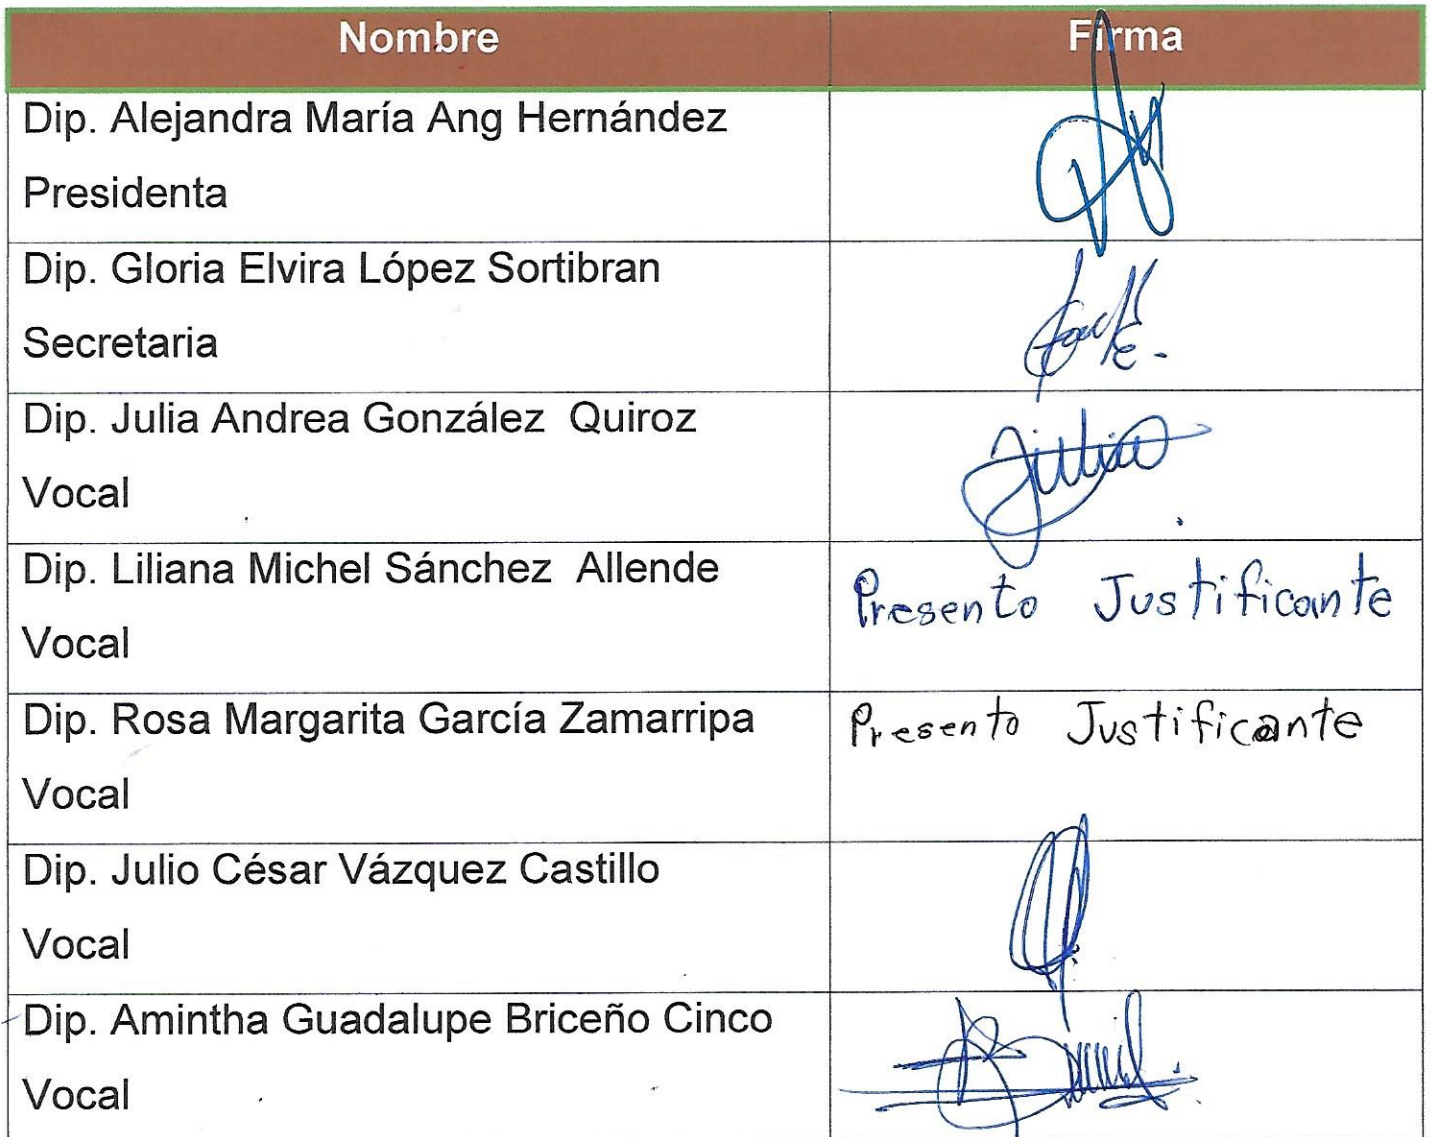 Nombre Firma
Dip. Alejandra María Ang Hernández
Presidenta
Dip. Gloria Elvira López Sortibran
Secretaria
Dip. Julia Andrea González Quiroz
Julia
Vocal
Dip. Liliana Michel Sánchez Allende
Presento Justificante
Vocal
Dip. Rosa Margarita García Zamarripa
Presento Justificante
Vocal
Dip. Julio César Vázquez Castillo
Vocal
Dip. Amintha Guadalupe Briceño Cinco
Vocal